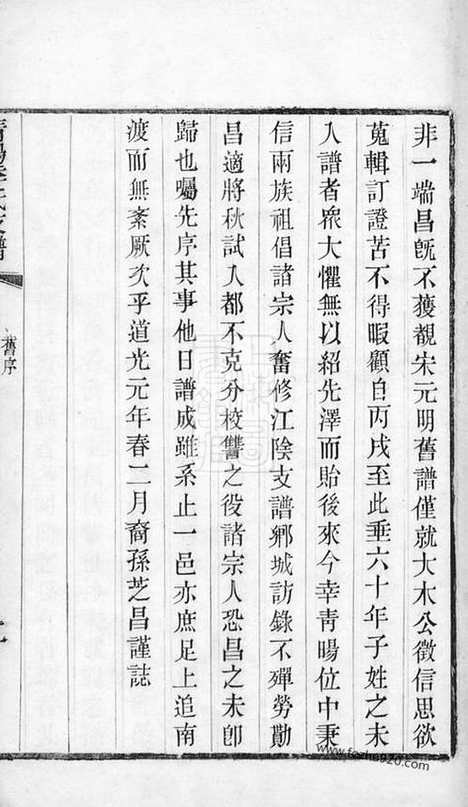 非一端昌旣不獲覩宋元明舊譜僅就大木公徵信思欲
蒐輯訂證苦不得暇顧自丙戌至此垂六十年子姓之未
入譜者衆大懼無以紹先澤而貽後來今幸靑暘位中秉
信兩族祖倡諸宗人奮修江陰支譜鄉城訪錄不殫勞勩
昌適將秋試入都不克分校讐之役諸宗人恐昌之未卽
歸也囑先序其事他日譜成雖系止一邑亦庶足上追南
渡而無紊厥次乎道光元年春二月裔孫芝昌謹誌
舊序
www.fozhu920.com